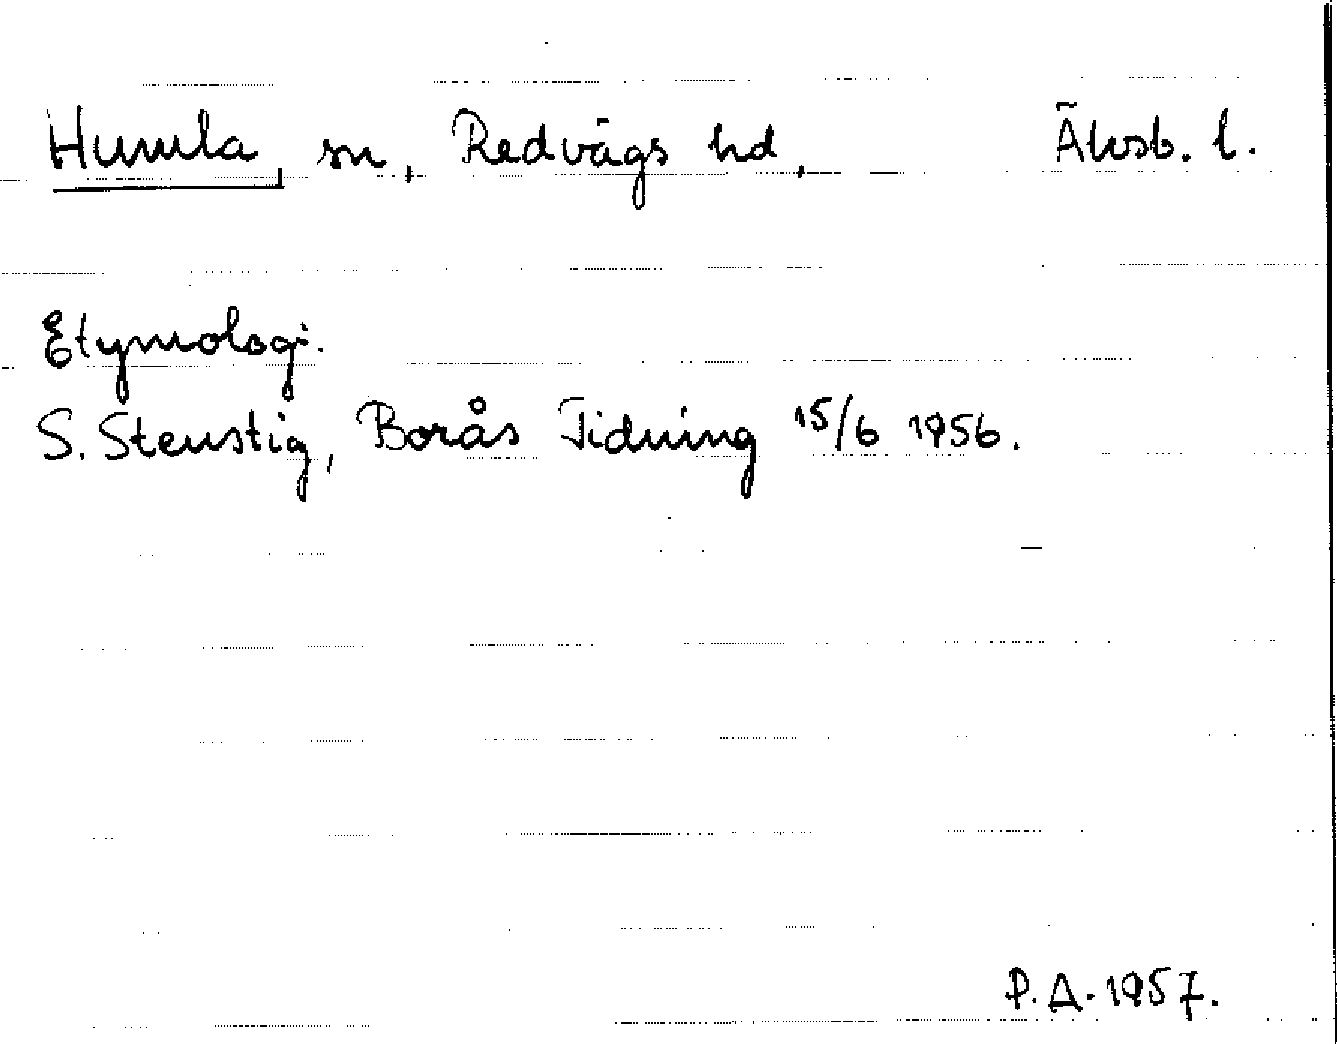 Humla, sn, Redvägs hd, Älvsb. l.
Etymologi.
S. Stenstig, Borås Tidning 15/6 1956.
P. A. 1957.